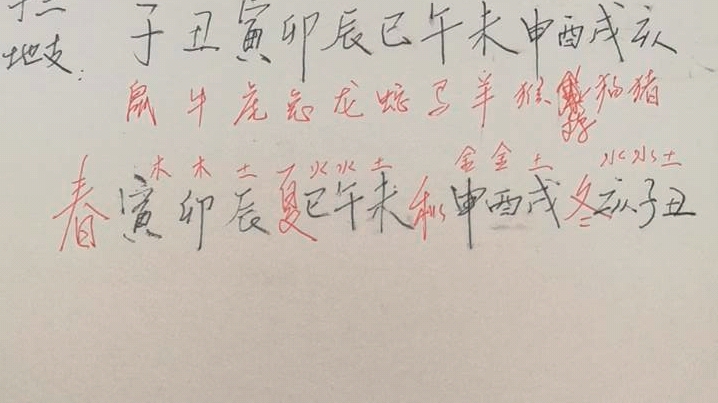 十二 子丑寅卯辰巳午未申酉戌亥
地支:
鼠牛虎兔龙蛇马羊猴鸡狗猪
木木土 火火土 金金土 水水土
春寅卯辰夏巳午未秋申酉戌冬亥子丑